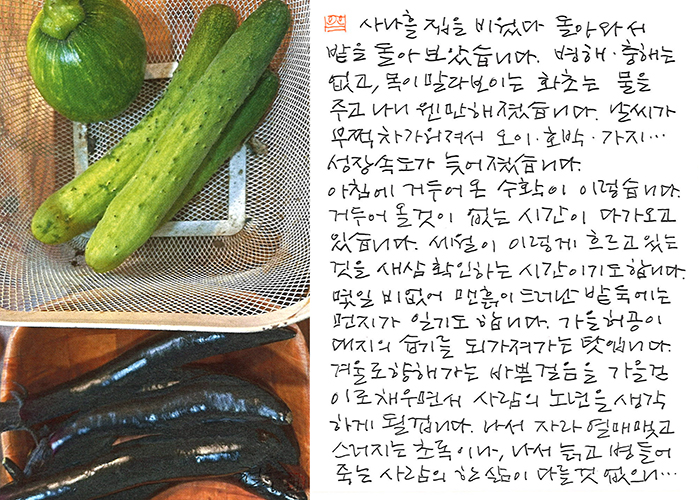 사나흘 집을 비웠다 돌아와서
밭을 돌아 보았습니다. 병해·충해는
없고, 목이말라보이는 화초는 물을
주고나니 웬만해졌습니다. 날씨가
부쩍차가워져서 오이·호박·가지…
성장속도가 늦어졌습니다.
아침에 거두어 온 수확이 이렇습니다.
거두어 올것이 없는 시간이 다가오고
있습니다. 세월이 이렇게 흐르고 있는
것을 새삼 확인하는 시간이기도합니다.
몇일 비없어 맨흙이 드러난 밭둑에는
먼지가 일기도 합니다. 가을허공이
대지의 습기를 되가져가는 탓입니다.
겨울로향해가는 바쁜 걸음을 가을걷
이로채우면서 사람의 노년을 생각
하게 될겁니다. 나서 자라 열매맺고
스러지는 초록이나, 나서 늙고 병들어
죽는 사람의 한 삶이 다를것 없으니…